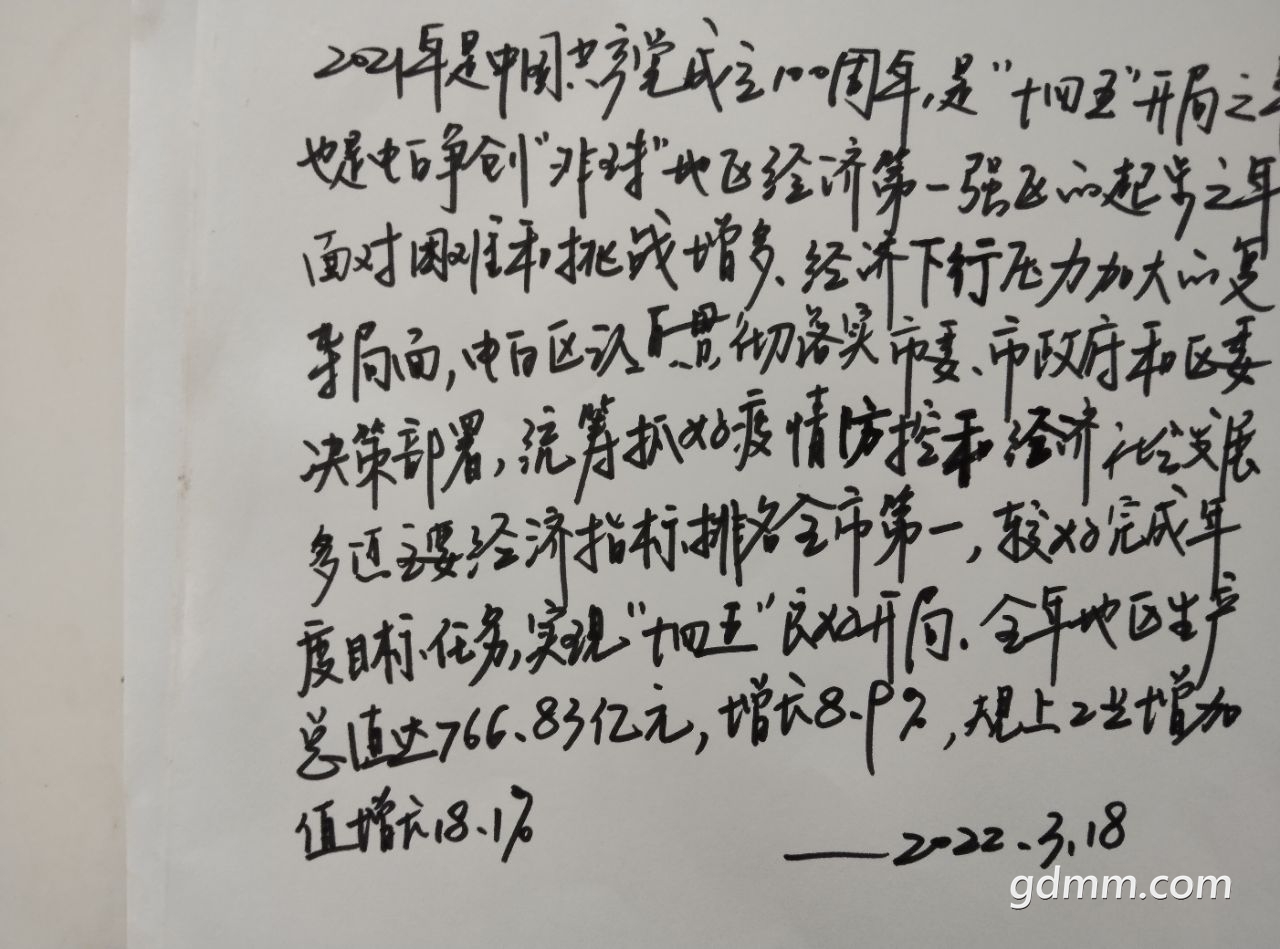 2021年是中国共产党成立100周年,是"十四五"开局之年
也是电白争创"非珠"地区经济第一强区的起步之年
面对困难和挑战增多、经济下行压力加大的复
杂局面,电白区认真贯彻落实市委、市政府和区委
决策部署,统筹抓好疫情防控和经济社会发展
多项主要经济指标排名全市第一,较好完成年
度目标任务,实现"十四五"良好开局.全年地区生产
总值达766.83亿元,增长8.9%,规上工业增加
值增长18.1%
——2022.3.18
gdmm.com